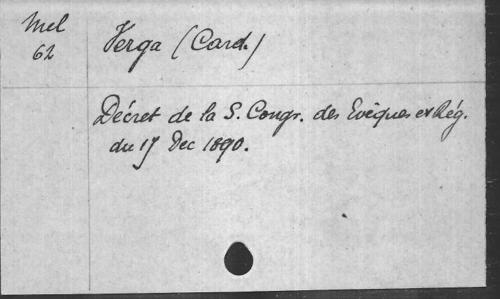 Mel
62
Verga (Card.)
Décret de la S. Congr. des Evêques et Rég.
du 17 Dec 1890.